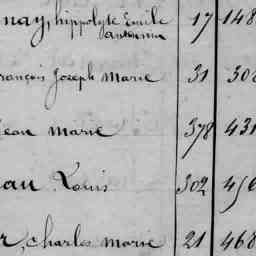 nay, hippolyte Emile 17 148
antonin
rançois Joseph Marie 31 308
Jean Marie 378 431
au Louis 302 456
r, charles Marie 21 468